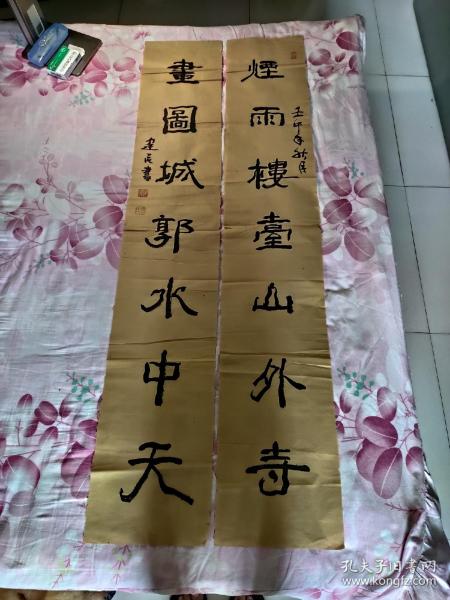 煙雨樓臺山外寺
畫圖城郭水中天
孔夫子旧书网
www.kongfz.com